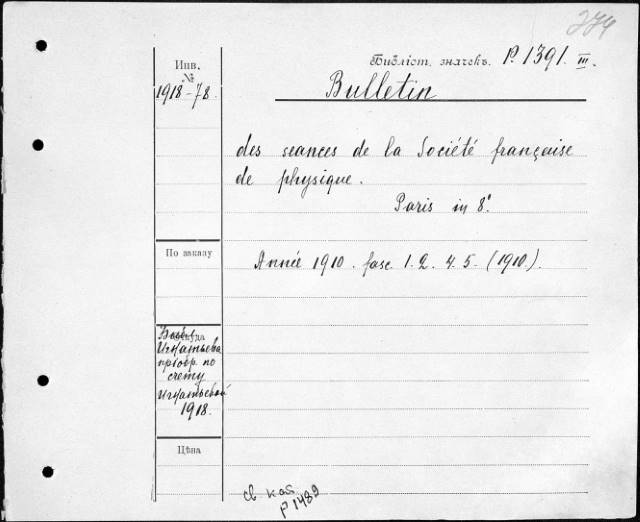 274
Инв.
№
1918-78.
Библіот. значекъ. P. 1391. III.
Bulletin
des seances de la Société française
de physique.
Paris in 8°.
По заказу
Année 1910. fasc. 1. 2. 4. 5. (1910).
Откуда
Игнатьева
пріобр. по
счету
Игнатьевой
1918.
Цѣна
св каб
P 1489